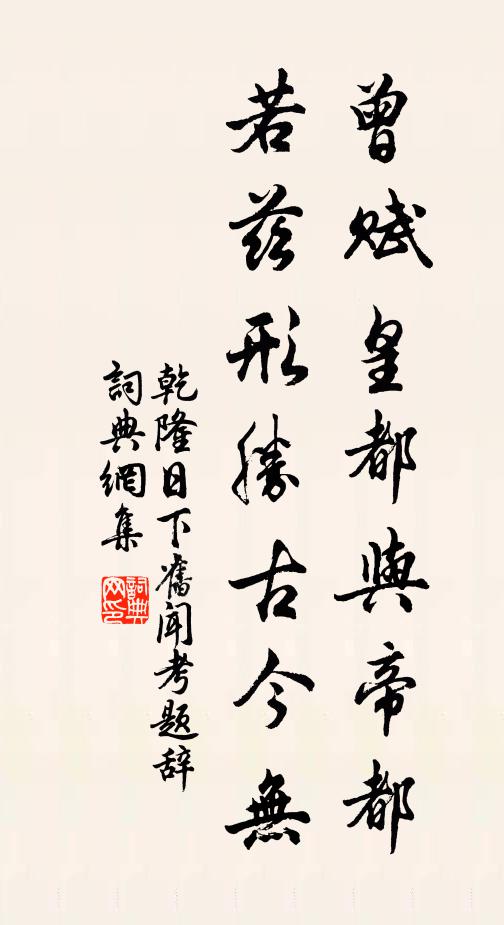 曾賦皇都與帝都
若茲形勝古今無
乾隆日下舊聞考題辞
詞典網集
詞典網印